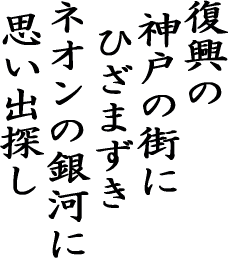 復興の
神戸の街に
ひざまずき
ネオンの銀河に
思い出探し